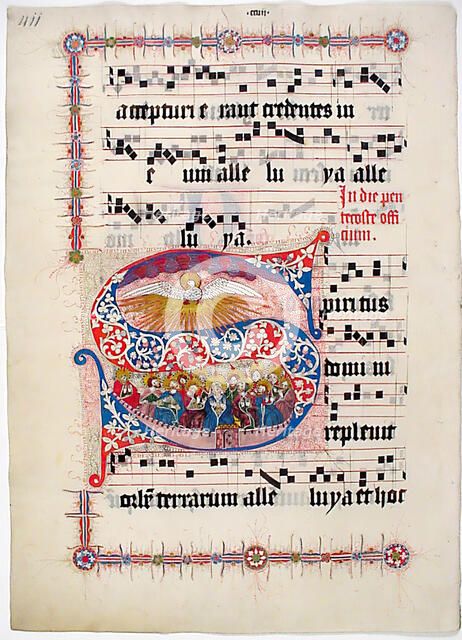 411
·ccxiii·
accepturi e rant credentes in
e um alle lu ya alle
In die pen
tecoste offi
cium.
lu ya.
S
piritus
domi ni
repleuit
orbē terrarum alle luya et hoc